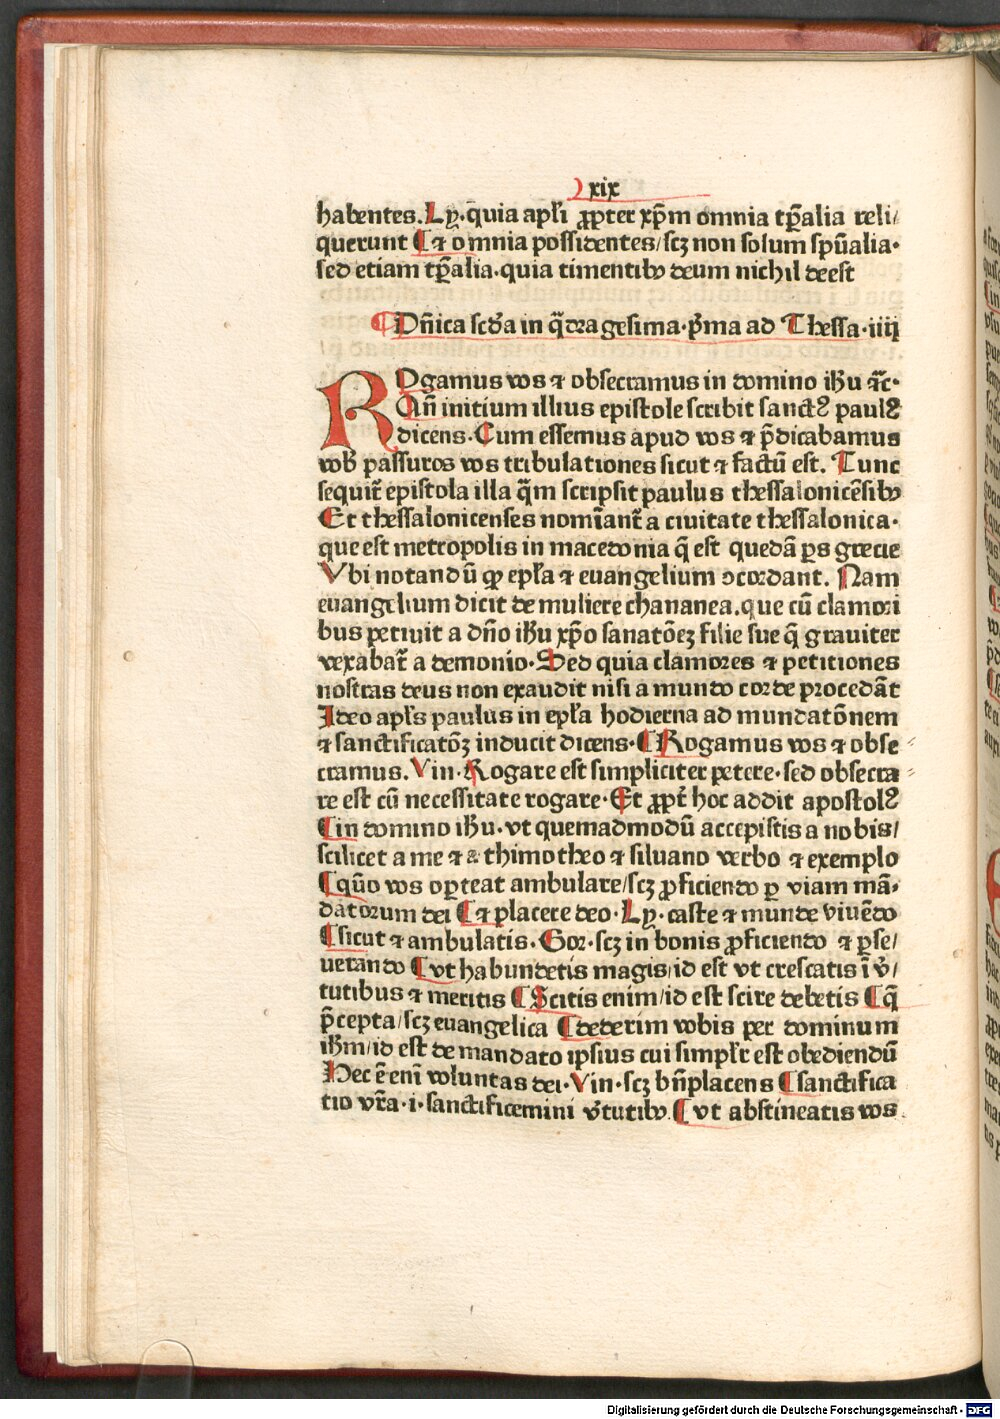 xix
habentes. Ly. quia apl'i ꝓpter xp̄m omnia tꝑalia reli/
querunt ¶ ⁊ omnia possidentes/scꝫ non solum spūalia.
sed etiam tꝑalia. quia timentibꝰ deum nichil deest
¶ Dn̄ica scd'a in q̄dragesima. p̄ma ad Thessa. iiij
ROgamus vos ⁊ obsecramus in domino ihū ⁊c̄.
An̄ initium illius epistole scribit sanctꝰ paulꝰ
dicens. Cum essemus apud vos ⁊ p̄dicabamus
vob̄ passuros vos tribulationes sicut ⁊ factū est. Tunc
sequit̄ epistola illa q̄m scripsit paulus thessalonicēsibꝰ
Et thessalonicenses nomīant̄ a ciuitate thessalonica.
que est metropolis in macedonia q̄ est quedā ꝑs grecie
Vbi notandū ꝙ epl'a ⁊ euangelium ꝯcordant. Nam
euangelium dicit de muliere chananea. que cū clamori
bus petiuit a dn̄o ihū xp̄o sanatōeꝫ filie sue q̄ grauiter
vexabat̄ a demonio. Sed quia clamores ⁊ petitiones
nostras deus non exaudit nisi a mundo corde procedāt
Ideo apl's paulus in epl'a hodierna ad mundatōnem
⁊ sanctificatōꝫ inducit dicens. ¶ Rogamus vos ⁊ obse
cramus. Vin. Rogare est simpliciter petere. sed obsecra
re est cū necessitate rogare. Et ꝓpt̄ hoc addit apostolꝰ
¶ in domino ihū. vt quemadmodū accepistis a nobis/
scilicet a me ⁊ a thimotheo ⁊ siluano verbo ⁊ exemplo
¶ quō vos oꝑteat ambulare/scꝫ ꝓficiendo ꝑ viam mā.
datorum dei ¶ ⁊ placere deo. Ly. caste ⁊ munde viuēdo
¶ sicut ⁊ ambulatis. Gor. scꝫ in bonis ꝓficiendo ⁊ ꝑse/
uerando ¶ vt habundetis magis/id est vt crescatis ī v̄/
tutibus ⁊ meritis ¶ Scitis enim/id est scire debetis ¶ q̄
p̄cepta/scꝫ euangelica ¶ dederim vobis per dominum
ihm̄/id est de mandato ipsius cui simpl'r est obediendū
Hec ē enī voluntas dei. Vin. scꝫ bn̄placens ¶ sanctifica
tio vr̄a. i. sanctificemini v̄tutibꝰ. ¶ vt abstineatis vos
Digitalisierung gefördert durch die Deutsche Forschungsgemeinschaft - DFG